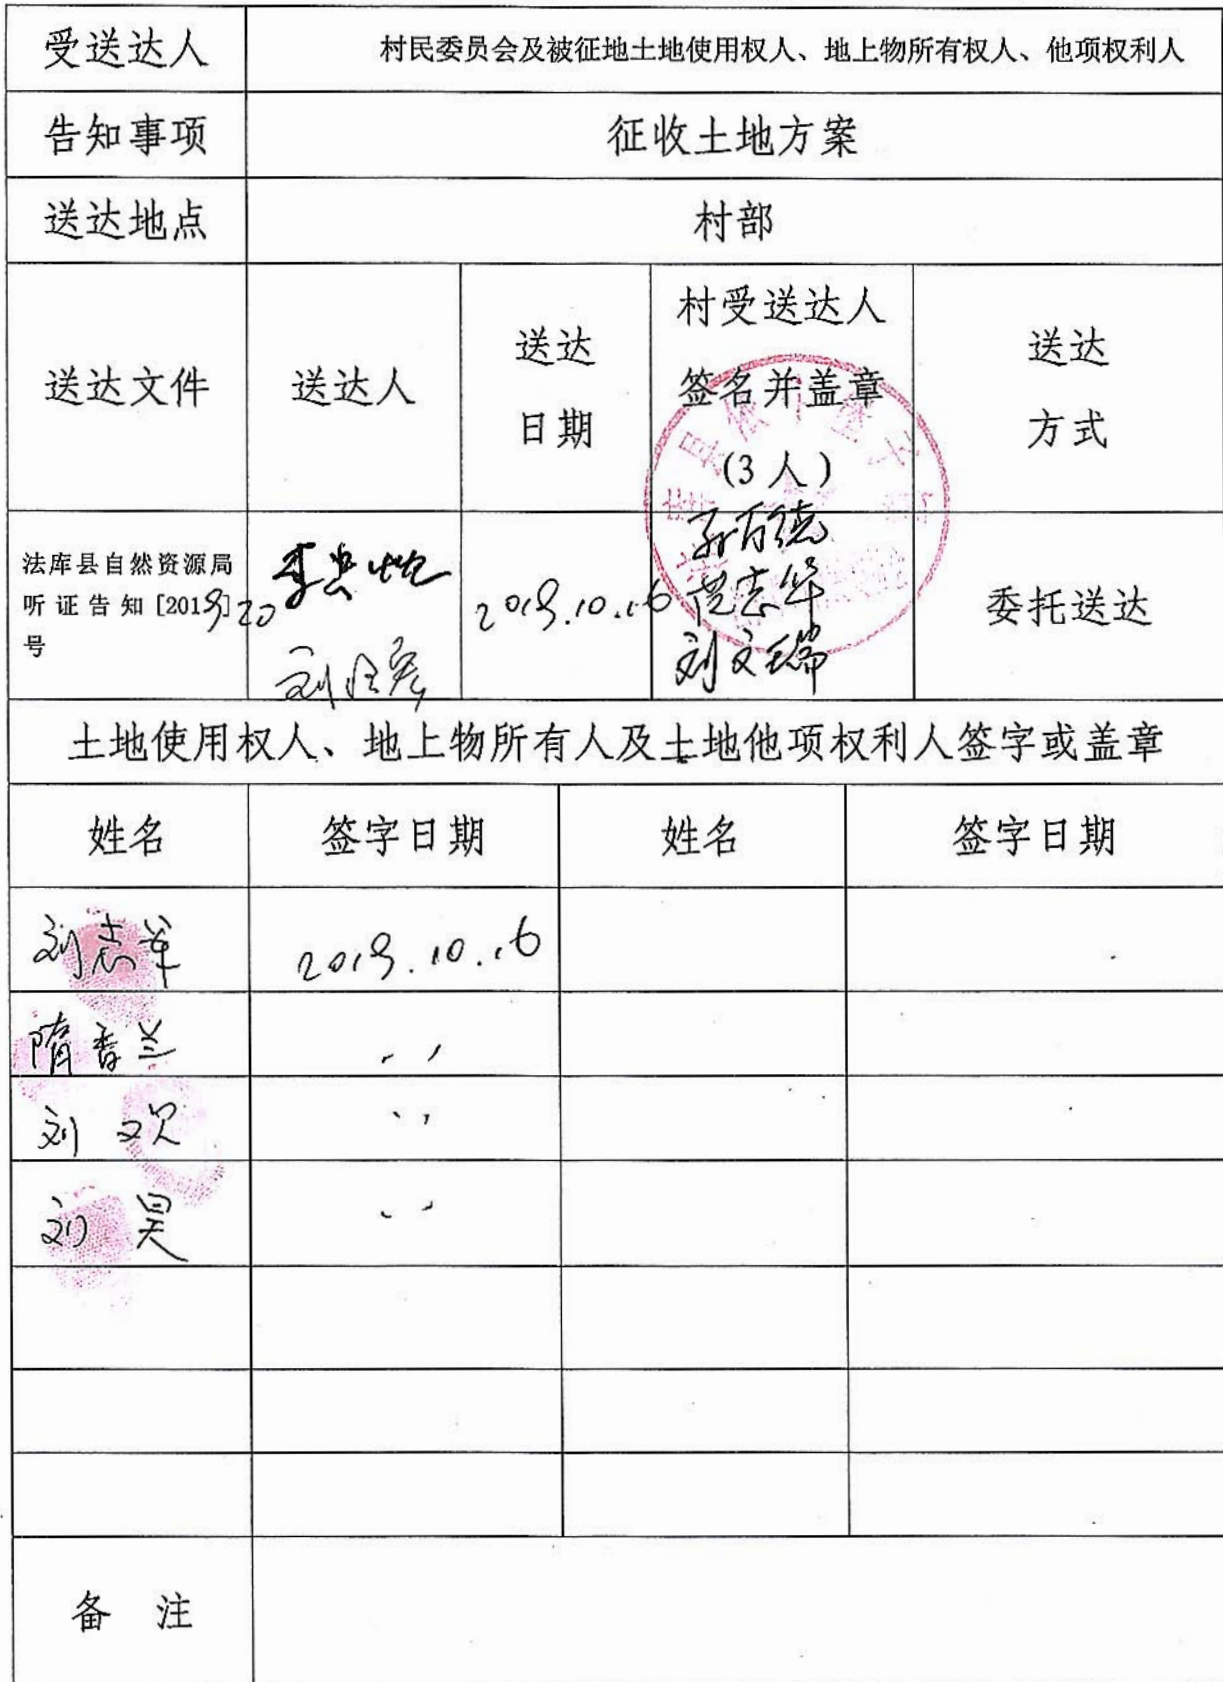 受送达人
村民委员会及被征地土地使用权人、地上物所有权人、他项权利人
告知事项
征收土地方案
送达地点
村部
送达文件
送达人
送达
日期
村受送达人
签名并盖章
(3人)
送达
方式
法库县自然资源局
听证告知[2019]20
号
2019.10.16
刘文瑞
委托送达
土地使用权人、地上物所有人及土地他项权利人签字或盖章
姓名
签字日期
姓名
签字日期
刘志军
2019.10.16
隋香兰
〃
刘欢
〃
刘昊
〃
备 注